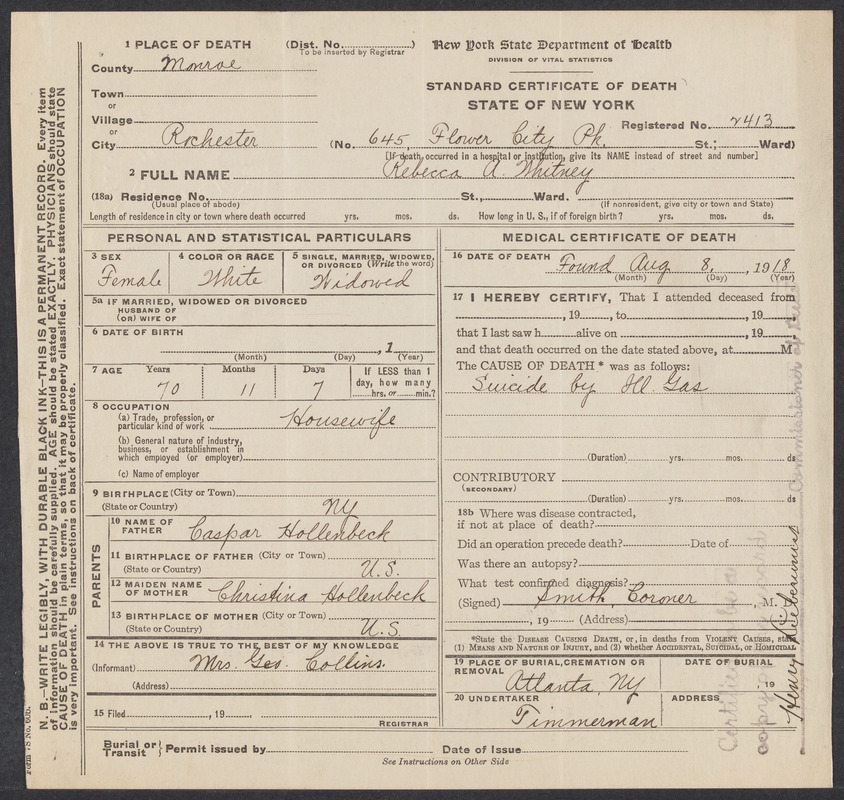 1 PLACE OF DEATH (Dist. No. )
To be inserted by Registrar
County Monroe
Town
or
Village
or
City Rochester (No. 645, Flower City Pk. St.; Ward)
New York State Department of Health
DIVISION OF VITAL STATISTICS
STANDARD CERTIFICATE OF DEATH
STATE OF NEW YORK
Registered No. 2413
[If death occurred in a hospital or institution, give its NAME instead of street and number]
2 FULL NAME Rebecca A. Whitney
(18a) Residence No. St., Ward.
(Usual place of abode) (If nonresident, give city or town and State)
Length of residence in city or town where death occurred yrs. mos. ds. How long in U. S., if of foreign birth? yrs. mos. ds.
PERSONAL AND STATISTICAL PARTICULARS
3 SEX
Female
4 COLOR OR RACE
White
5 SINGLE, MARRIED, WIDOWED,
OR DIVORCED (Write the word)
Widowed
5a IF MARRIED, WIDOWED OR DIVORCED
HUSBAND OF
(OR) WIFE OF
6 DATE OF BIRTH
, 1
(Month) (Day) (Year)
7 AGE Years Months Days
70 11 7
If LESS than 1
day, how many
hrs. or min.?
8 OCCUPATION
(a) Trade, profession, or
particular kind of work Housewife
(b) General nature of industry,
business, or establishment in
which employed (or employer)
(c) Name of employer
9 BIRTHPLACE (City or Town)
(State or Country) NY
PARENTS
10 NAME OF
FATHER Caspar Hollenbeck
11 BIRTHPLACE OF FATHER (City or Town)
(State or Country) U.S.
12 MAIDEN NAME
OF MOTHER Christina Hollenbeck
13 BIRTHPLACE OF MOTHER (City or Town)
(State or Country) U.S.
14 THE ABOVE IS TRUE TO THE BEST OF MY KNOWLEDGE
(Informant) Mrs. Geo. Collins
(Address)
15 Filed , 19
REGISTRAR
MEDICAL CERTIFICATE OF DEATH
16 DATE OF DEATH Found Aug 8, , 1918
(Month) (Day) (Year)
17 I HEREBY CERTIFY, That I attended deceased from
, 19 , to , 19
that I last saw h alive on , 19
and that death occurred on the date stated above, at M
The CAUSE OF DEATH* was as follows:
Suicide by Ill. Gas
(Duration) yrs. mos. ds
CONTRIBUTORY
(SECONDARY)
(Duration) yrs. mos. ds
18b Where was disease contracted,
if not at place of death?
Did an operation precede death? Date of
Was there an autopsy?
What test confirmed diagnosis?
(Signed) Smith, Coroner , M. D.
, 19 (Address)
*State the DISEASE CAUSING DEATH, or, in deaths from VIOLENT CAUSES, state
(1) MEANS AND NATURE OF INJURY, and (2) whether ACCIDENTAL, SUICIDAL, or HOMICIDAL
19 PLACE OF BURIAL, CREMATION OR
REMOVAL
Atlanta, NY
DATE OF BURIAL
, 19
20 UNDERTAKER
Timmerman
ADDRESS
Burial or
Transit } Permit issued by Date of Issue
See Instructions on Other Side
N. B.—WRITE LEGIBLY, WITH DURABLE BLACK INK—THIS IS A PERMANENT RECORD. Every item
of information should be carefully supplied. AGE should be stated EXACTLY. PHYSICIANS should state
CAUSE OF DEATH in plain terms, so that it may be properly classified. Exact statement of OCCUPATION
is very important. See instructions on back of certificate.
Form VS No. 60b.
Henry